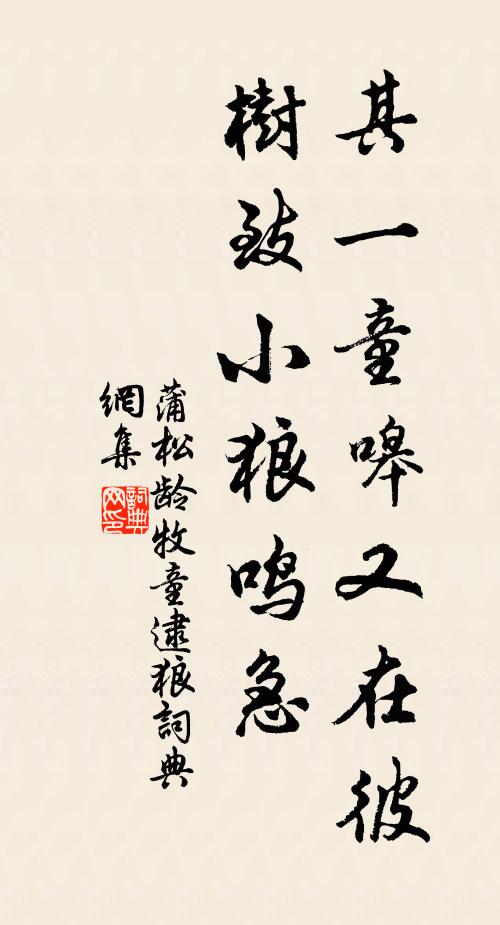 其一童嗥又在彼
樹致小狼鸣急
蒲松龄牧童逮狼詞典
網集
詞典
网印